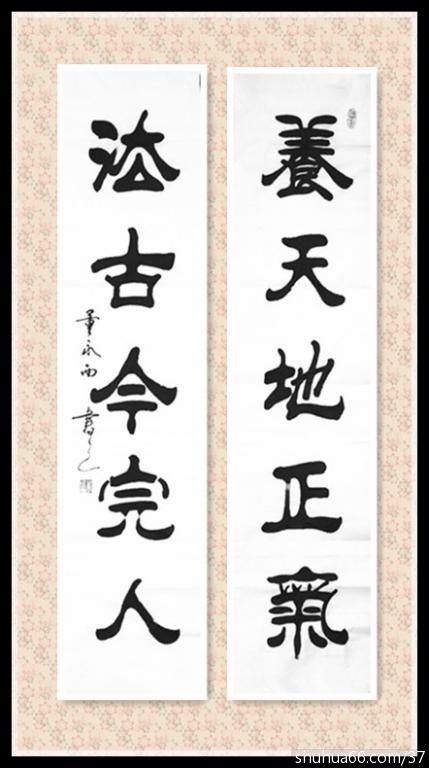 養天地正氣
法古今完人
董永雨書
shuhua66.com/37